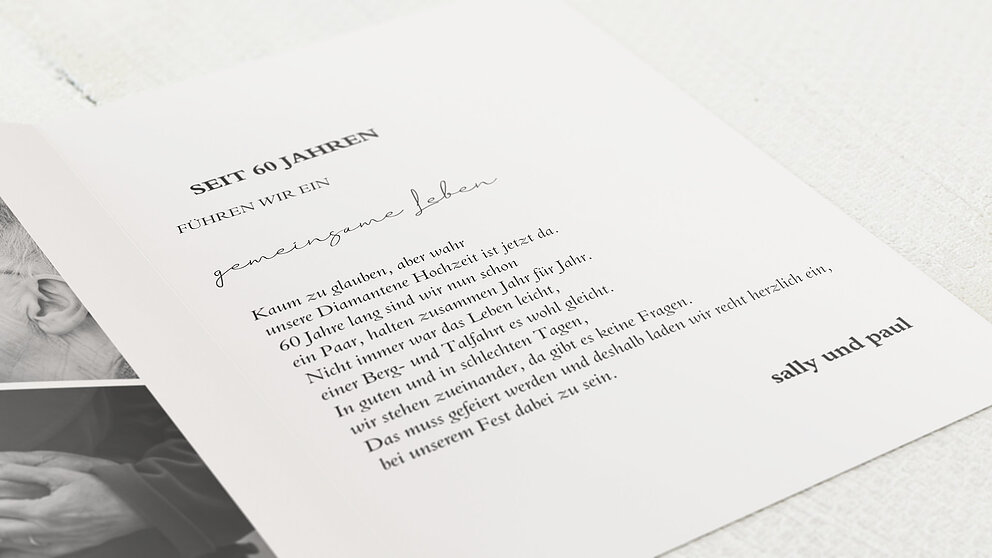 SEIT 60 JAHREN
FÜHREN WIR EIN
gemeinsame Leben
Kaum zu glauben, aber wahr
unsere Diamantene Hochzeit ist jetzt da.
60 Jahre lang sind wir nun schon
ein Paar, halten zusammen Jahr für Jahr.
Nicht immer war das Leben leicht,
einer Berg- und Talfahrt es wohl gleicht.
In guten und in schlechten Tagen,
wir stehen zueinander, da gibt es keine Fragen.
Das muss gefeiert werden und deshalb laden wir recht herzlich ein,
bei unserem Fest dabei zu sein.
sally und paul